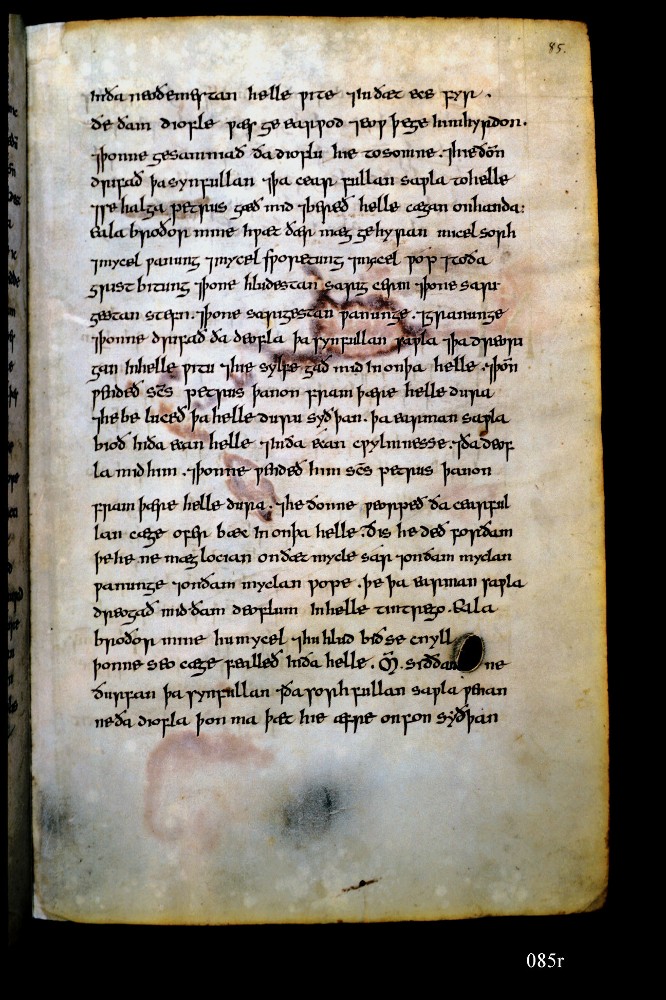 85.
in ða neoðemestan helle ƿite ⁊ in ðæt ece fyr .
ðe ðam diofle ƿæs ge earƿod ⁊ eoƿ þe ge him hyrdon.
⁊ þonne gesamniað ða dioflu hie tosomne . ⁊ hie dōn
drifað þa synfullan ⁊ þa cear fullan saƿla to helle
⁊ se halga petrus gæð mid ⁊ bereð helle cægan on handa:
Eala broðor mine hƿæt ðær mæg gehyran micel sorh
⁊ mycel ƿanung ⁊ mycel sƿoretung ⁊ mycel ƿoƿ ⁊ toða
grist bitung ⁊ þone hludestan sarig cerm ⁊ þone sari
gestan stefn . ⁊ þone sarigestan ƿanunge . ⁊ granunge
þonne drifað ða deofla þa synfullan saƿla ⁊ þa dreori
gan in helle ƿitu ⁊ hie sylfe gað mid in on þa helle . ⁊ þōn
ƿendeð scs̄ petrus þanon fram þære helle dura
⁊ he be luceð þa helle duru syðþan . þa earman saƿla
bioð in ða ecan helle ⁊ in ða ecan cƿylmnesse . ⁊ ða deof
la mid him . ⁊ þonne ƿendeð him scs̄ petrus þanon
fram þære helle dura . ⁊ he ðonne ƿeorpeð ða cearful
lan cæge ofer bæc in on þa helle . ðis he deð forðam
þe he ne mæg locian on ðæt mycle sar ⁊ on ðam myclan
ƿanunge ⁊ on ðam myclan ƿope . þe þa earman saƿla
dreogað mid ðam deoflum in helle tintrego . Eala
broðor mine hu mycel ⁊ hu hlud bið se cnyll
þonne seo cæge fealleð in ða helle . M̄. siððan ne
ðurfan þa synfullan ⁊ ða sorh fullan saƿla ƿenan
ne ða diofla þon ma þæt hie æfre onfon syðþan
085r